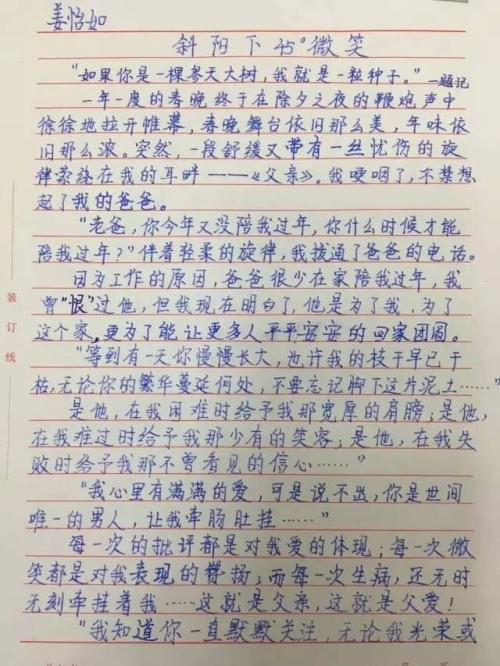 姜怡如
斜阳下45°微笑
“如果你是一棵参天大树,我就是一粒种子。”—题记
一年一度的春晚终于在除夕之夜的鞭炮声中
徐徐地拉开帷幕,春晚舞台依旧那么美,年味依
旧那么浓。突然,一段舒缓又带有一丝忧伤的旋
律萦绕在我的耳畔——《父亲》。我哽咽了,不禁想
起了我的爸爸。
“老爸,你今年又没陪我过年,你什么时候才能
陪我过年?”伴着轻柔的旋律,我拨通了爸爸的电话。
因为工作的原因,爸爸很少在家陪我过年,我
曾“恨”过他,但我现在明白了,他是为了我、为了
这个家,更为了能让更多人平平安安的回家团圆。
“等到有一天你慢慢长大,也许我的枝干早已干
枯,无论你的繁华蔓延何处,不要忘记脚下这片泥土……”
是他,在我困难时给予我那宽厚的肩膀;是他,
在我难过时给予我那少有的笑容;是他,在我失
败时给予我那不曾看见的信心……”
“我心里有满满的爱,可是说不出,你是世间
唯一的男人,让我牵肠肚挂……”
每一次的批评都是对我爱的体现;每一次微
笑都是对我表现的赞扬;而每一次生病,还无时
无刻牵挂着我……这就是父亲,这就是父爱!
“我知道你一直默默关注,无论我光荣或
装订线